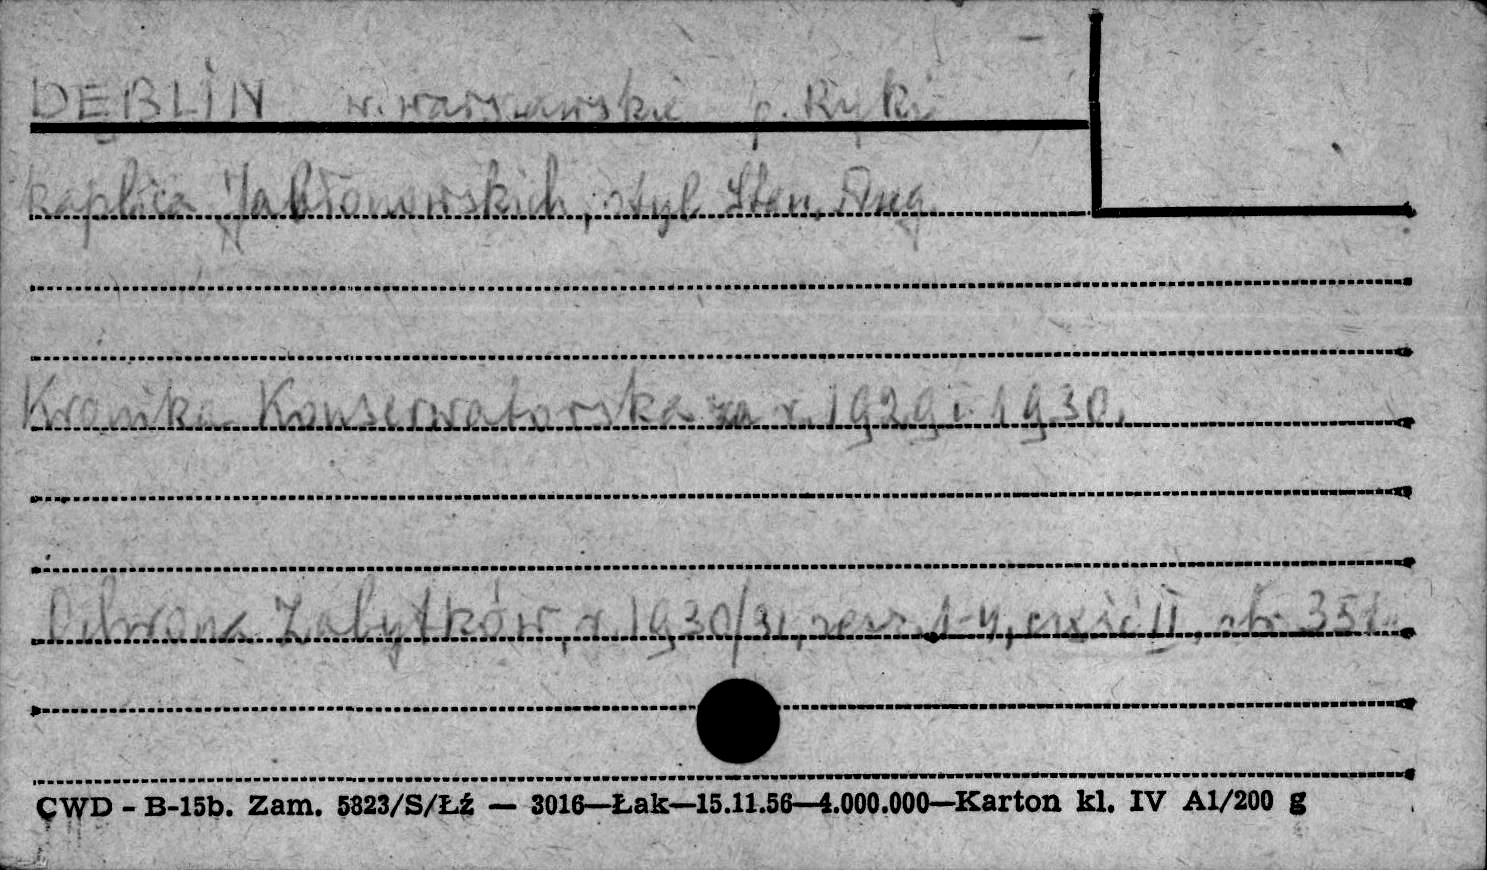 DĘBLIN w. warszawskie p. Ryki
Kaplica Jabłonowskich, styl Stan. Aug.
Kronika Konserwatorska za r. 1929 i 1930.
Ochrona Zabytków, r. 1930/31, zesz. 1-4, część II, str. 351.
CWD - B-15b. Zam. 5823/S/Łź — 3016—Łak—15.11.56—4.000.000—Karton kl. IV A1/200 g